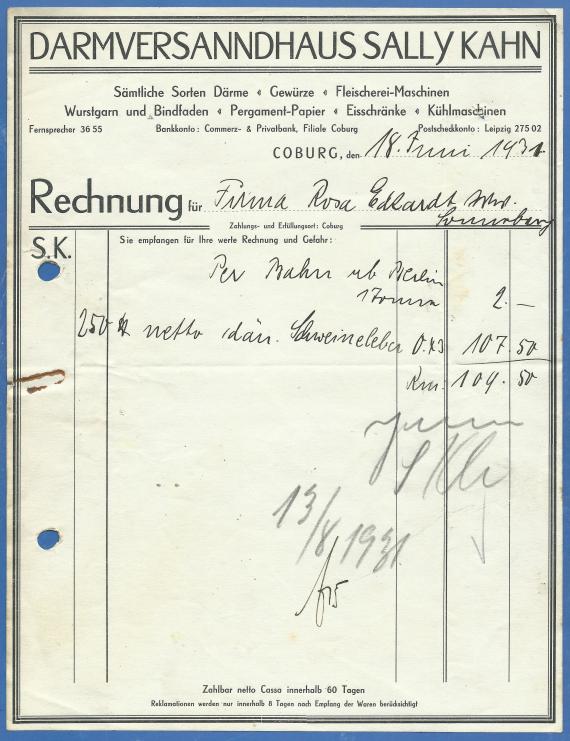 DARMVERSANNDHAUS SALLY KAHN
Sämtliche Sorten Därme « Gewürze « Fleischerei-Maschinen
Wurstgarn und Bindfaden « Pergament-Papier « Eisschränke « Kühlmaschinen
Fernsprecher 36 55 Bankkonto: Commerz- & Privatbank, Filiale Coburg Postscheckkonto: Leipzig 275 02
COBURG, den 18. Juni 1931
Rechnung für Firma Rosa Eckardt Wwe.
Sonneberg
Zahlungs- und Erfüllungsort: Coburg
S.K. Sie empfangen für Ihre werte Rechnung und Gefahr:
Per Bahn ab Berlin
1 Tonne 2.—
250 netto dän. Schweineleber 0.43 107.50
109.50
13/8 1931
Zahlbar netto Cassa innerhalb 60 Tagen
Reklamationen werden nur innerhalb 8 Tagen nach Empfang der Waren berücksichtigt